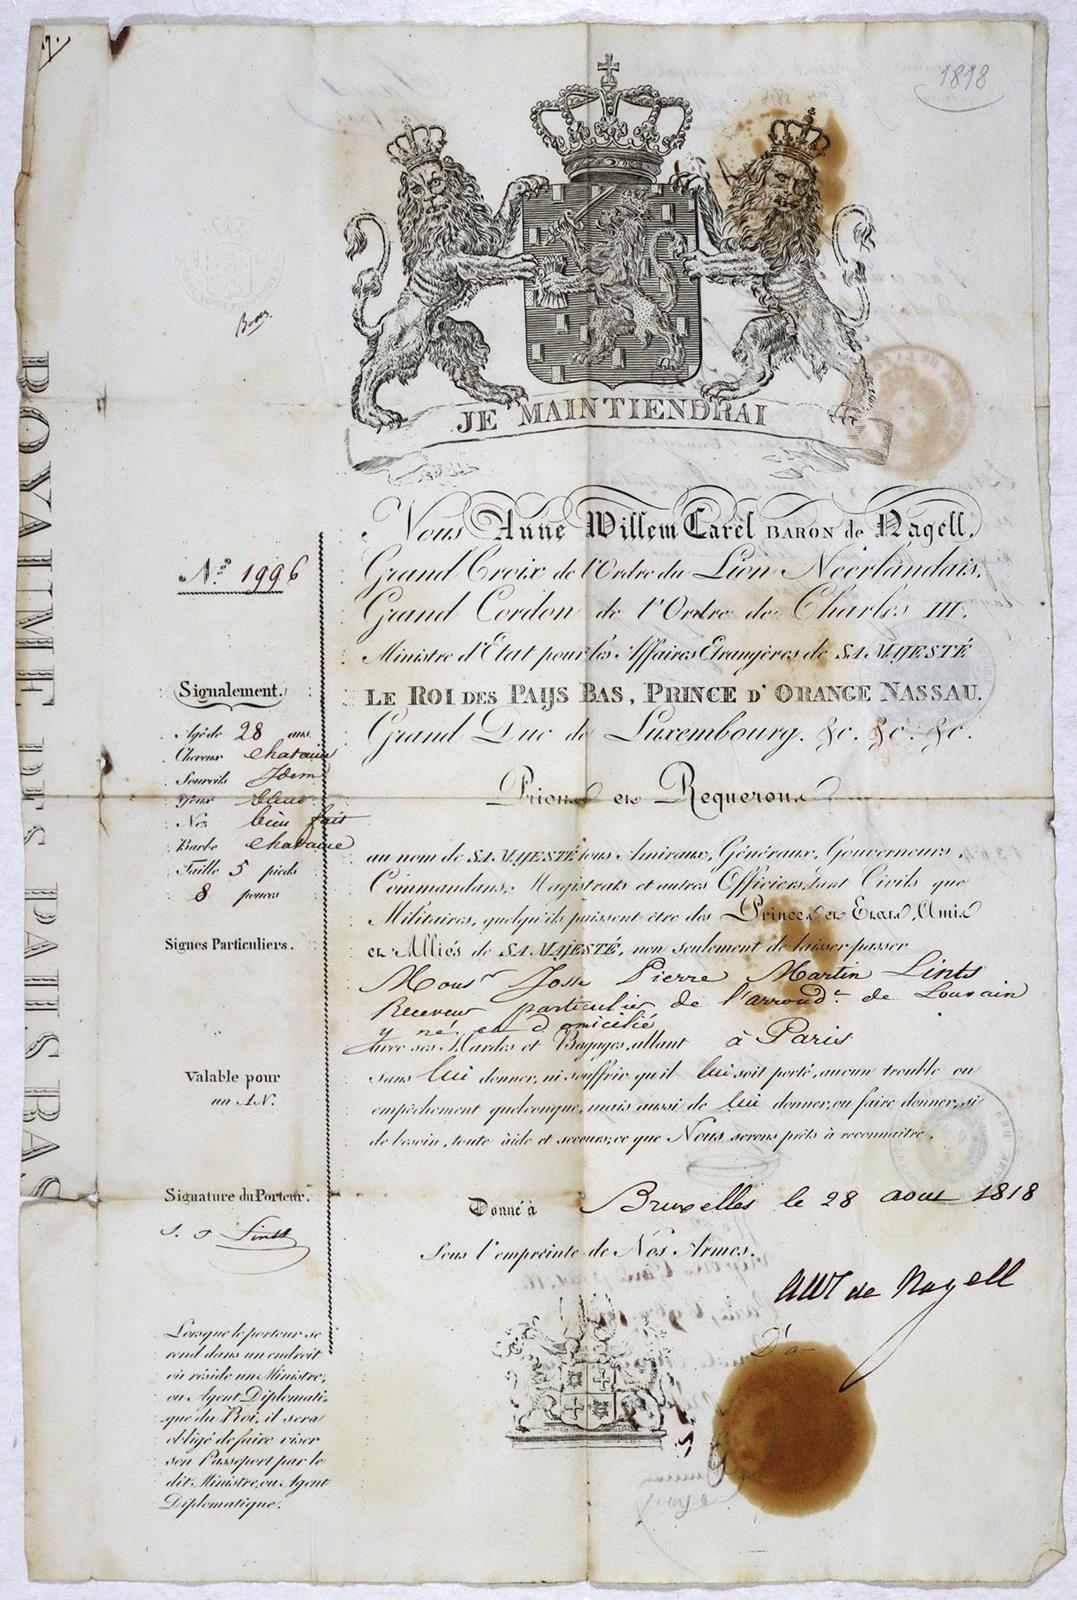 1818
JE MAINTIENDRAI
ROYAUME DES PAIJS BAS
Nous Anne Willem Carel BARON de Nagell,
Grand Croix de l'Ordre du Lion Néerlandais,
Grand Cordon de l'Ordre de Charles III.
Ministre d'Etat pour les Affaires Etrangères de SA MAJESTÉ
LE ROI DES PAIJS BAS, PRINCE D'ORANGE NASSAU.
Grand Duc de Luxembourg. &c. &c. &c.
Prions et Requerons
au nom de SA MAJESTÉ tous Amiraux, Généraux, Gouverneurs,
Commandans, Magistrats et autres Officiers, tant Civils que
Militaires, quelqu'ils puissent être des Princes et Etats, Amis
et Alliés de SA MAJESTÉ, non seulement de laisser passer
Monsr Josse Pierre Martin Lints
Receveur particulier de l'arrondt. de Louvain
y né et domicilié
avec ses Hardes et Bagages, allant à Paris
sans lui donner, ni souffrir qu'il lui soit porté, aucun trouble ou
empêchement quelconque, mais aussi de lui donner, ou faire donner, si
de besoin, toute aide et secours; ce que Nous serons prêts à reconnaitre.
Donné à Bruxelles le 28 aout 1818
Sous l'empreinte de Nos Armes.
AWC de Nagell
No. 1996
Signalement.
Agé de 28 ans
Cheveux chatain
Sourcils Idem
Yeux bleus
Nez bien fait
Barbe chataine
Taille 5 pieds
8 pouces
Signes Particuliers.
Valable pour
un AN.
Signature du Porteur.
J. P. Lints
Lorsque le porteur se
rend dans un endroit
où réside un Ministre,
ou Agent Diplomati-
que du Roi, il sera
obligé de faire viser
son Passeport par le
dit Ministre, ou Agent
Diplomatique.